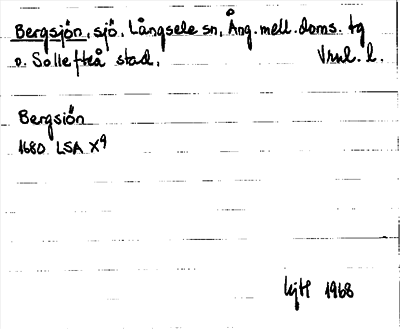 Bergsjön, sjö, Långsele sn, Ång. mell. doms. tg
o. Sollefteå stad, Vrnl. l.
Bergsiön
1680 LSA X9
1968